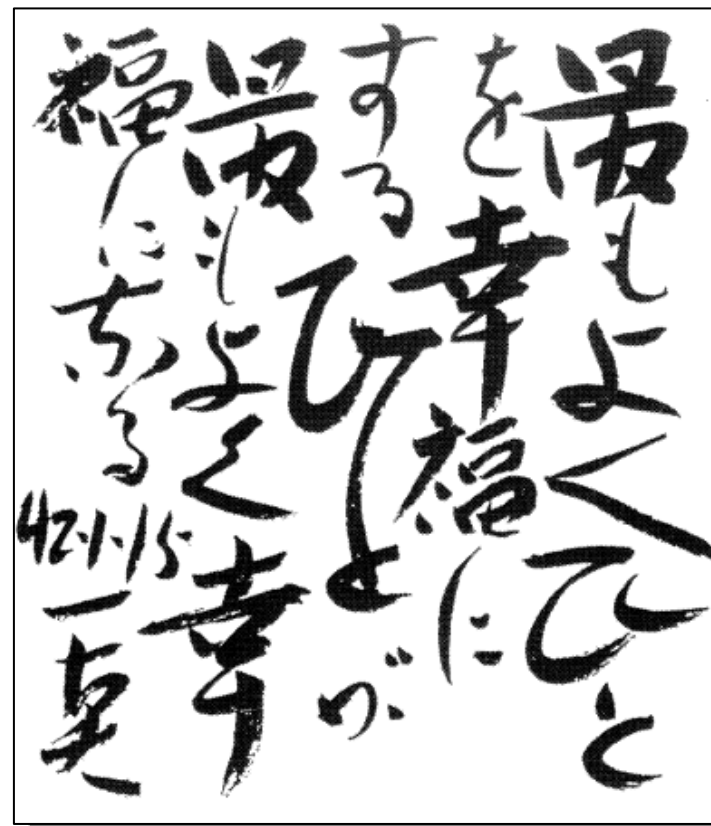 最もよくひと
を幸福に
するひとが
最もよく幸
福になる
42.1.15
一真